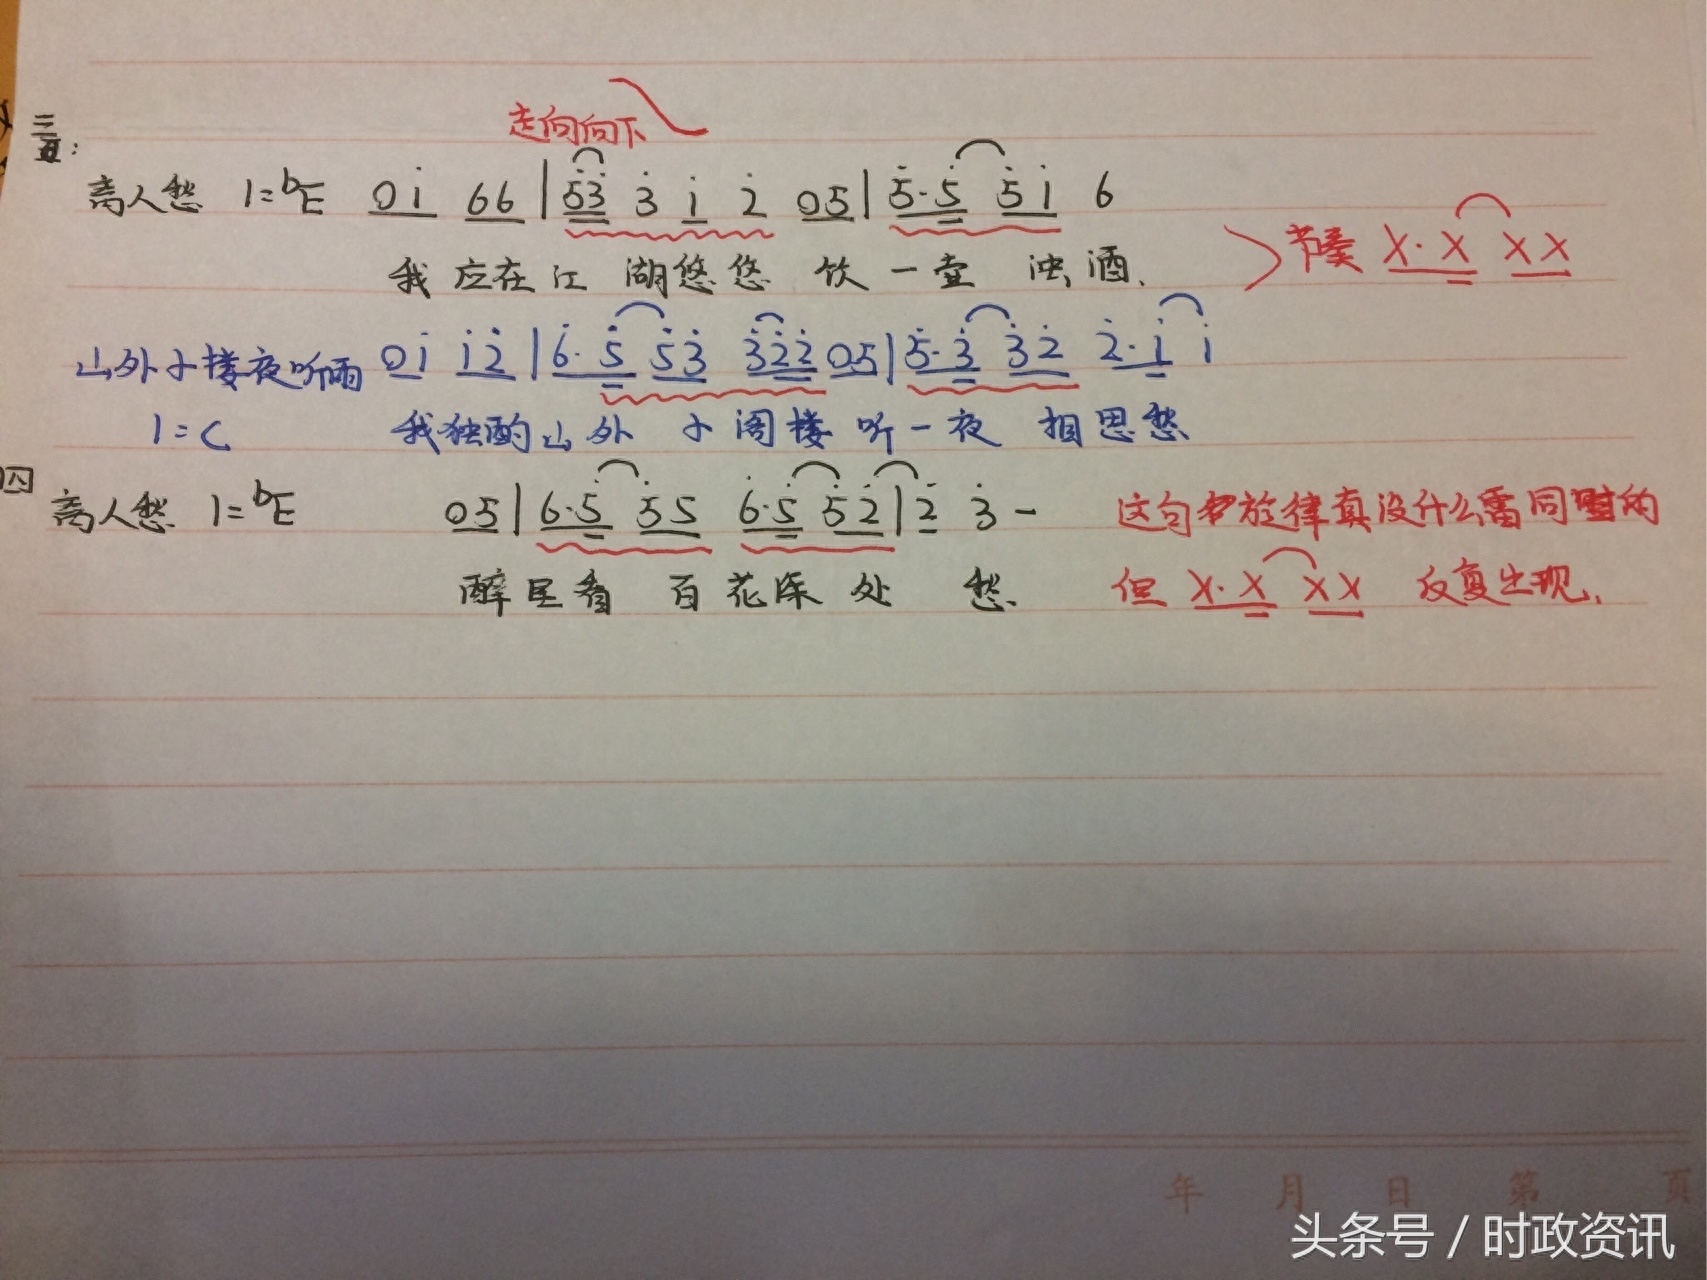 走向向下
三:
离人愁 1=bE 0i 66 | 53 3 i 2 05 | 5·5 5i 6
我应在江湖悠悠 饮一壶浊酒.
节奏 X·X XX
山外小楼夜听雨 0i i2 | 6·5 53 322 05 | 5·3 32 2·i i
1=C 我独酌山外小阁楼 听一夜相思愁
四 离人愁 1=bE 05 | 6·5 55 6·5 52 | 2 3 -
醉里看百花深处愁.
这句旋律真没什么雷同的
但 X·X XX 反复出现.
年 月 日 第 頁
头条号 / 时政资讯